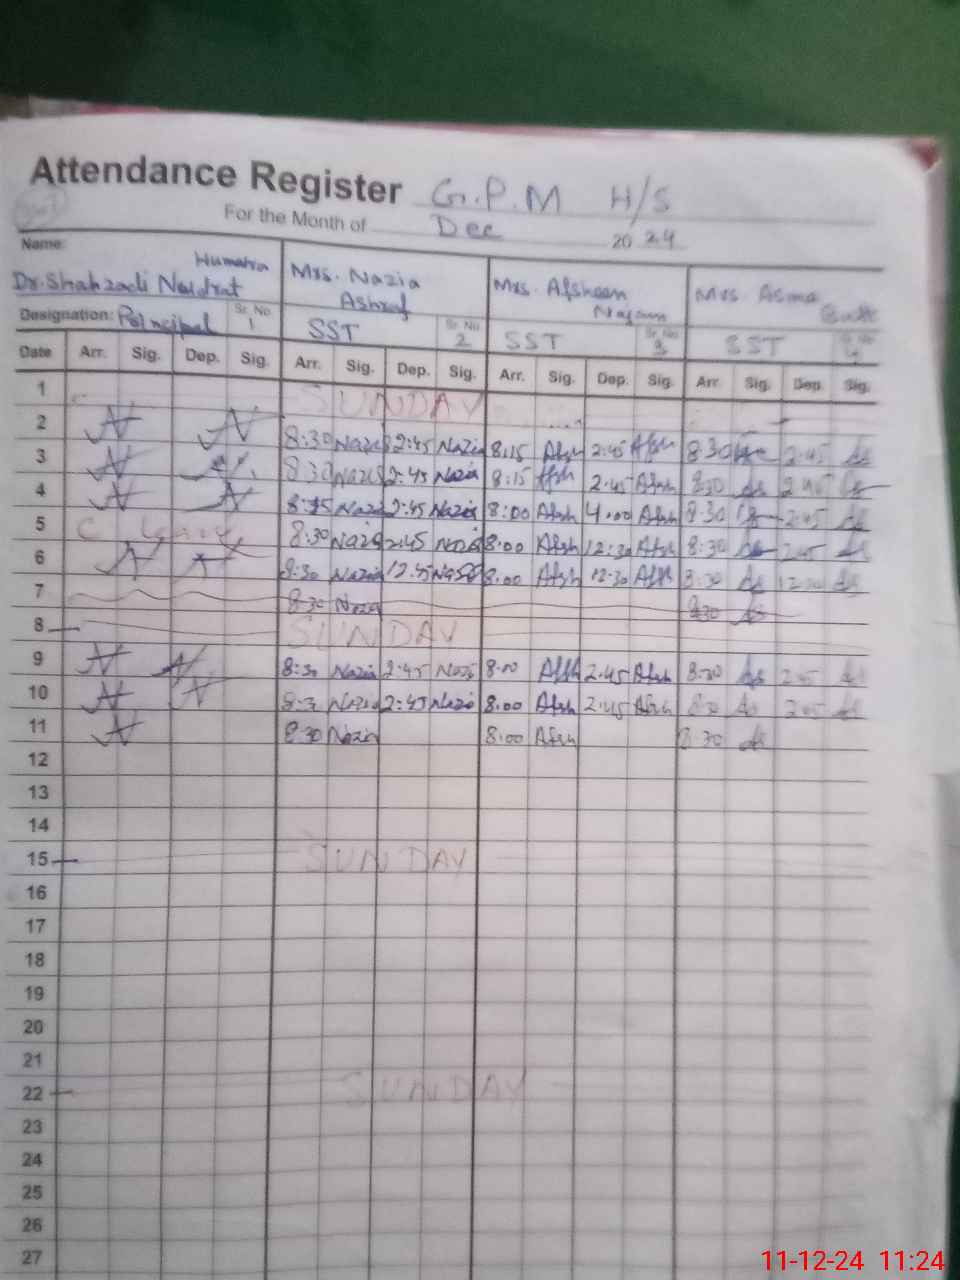 Attendance Register G.P.M H/S
For the Month of Dec 2024
Name:
Humaira
Dr. Shahzadi Mrs. Nazia Mrs. Afsheen Mrs. Asma
Ashraf Najam Butt
Designation: Principal Sr. No 1 SST Sr. No 2 SST Sr. No 3 SST
Date Arr. Sig. Dep. Sig. Arr. Sig. Dep. Sig. Arr. Sig. Dep. Sig. Arr. Sig. Dep. Sig.
1 SUNDAY
2 8:30 Nazia 2:45 Nazia 8:15 Afsh 2:45 Afsh 8:30 2:45
3 8:30 Nazia 2:45 Nazia 8:15 Afsh 2:45 Afsh 8:30 2:45
4 Nazia 2:45 Nazia 8:00 Afsh 4:00 Afsh 8:30 2:45
5 C Leave 8:30 Nazia 2:45 Nazia 8:00 Afsh 12:30 Afsh 8:30 2:45
6 8:30 Nazia 12:45 8:00 Afsh 12:30 Afsh 8:30
7 8:30 Nazia 8:30
8 SUNDAY
9 8:30 Nazia 2:45 Nazia 8:00 Afsh 2:45 Afsh 8:30 2:45
10 8:3 Nazia 2:45 Nazia 8:00 Afsh 2:45 Afsh 8:30 2:45
11 8:30 Nazia 8:00 Afsh 8:30
12
13
14
15 SUNDAY
16
17
18
19
20
21
22 SUNDAY
23
24
25
26
27
11-12-24 11:24